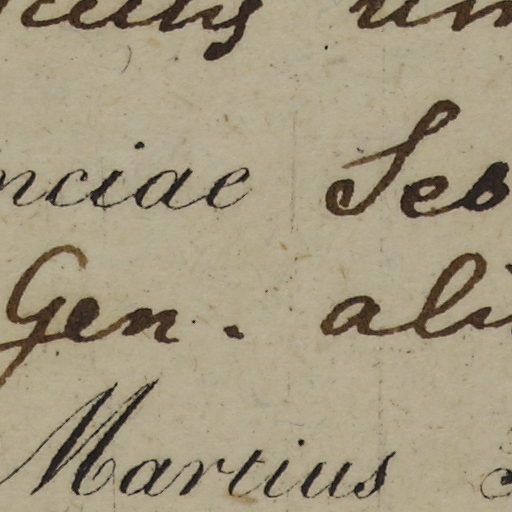 nciae Seb
Gen. ali
Martius